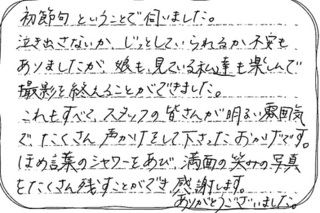 初節句ということで伺いました。
泣き出さないか、じっとしていられるか不安も
ありましたが、娘も、見ている私達も楽しんで
撮影を終えることができました。
これもすべて、スタッフの皆さんが明るい雰囲気
で、たくさん声かけをして下さったおかげです。
ほめ言葉のシャワーをあび、満面の笑みの写真
をたくさん残すことができ感謝します。
ありがとうございました。